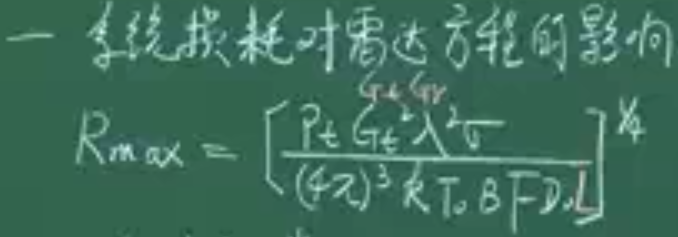 一 系统损耗对雷达方程的影响
Gt Gr
Rmax = [Pt Gt²λ²σ / (4π)³ k T₀ B F D₀ L]^¼